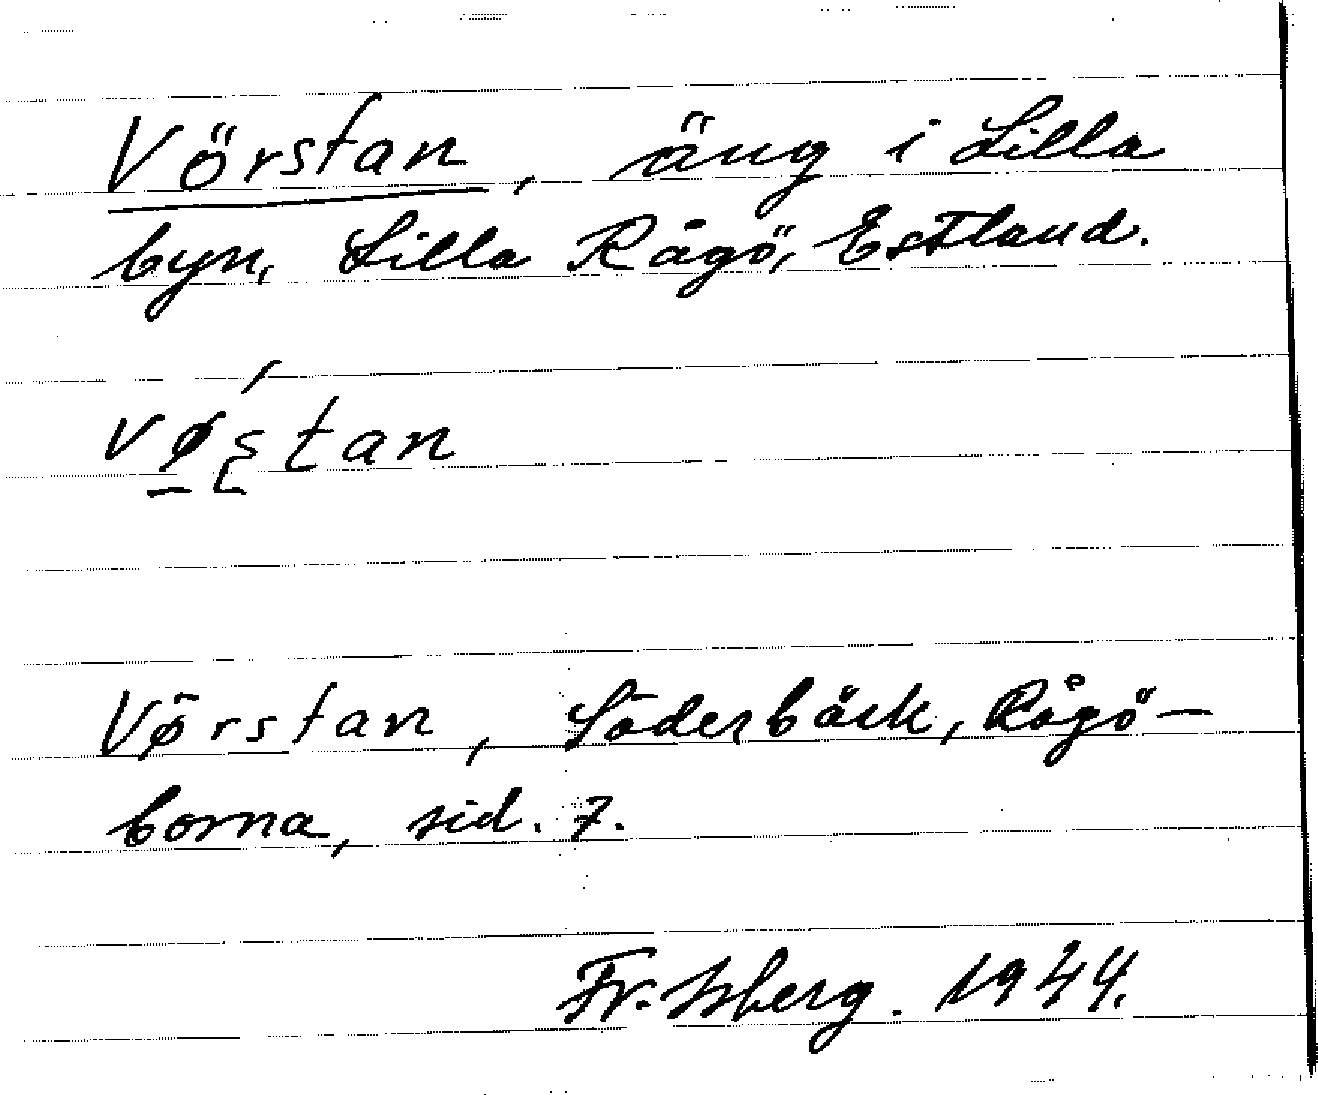 Vörstan, äng i Lilla
byn, Lilla Rågö, Estland.
vø̱ʂtan
Vø̄rstan, Söderbäck, Rågö-
borna, sid. 7.
Fr. Isberg. 1944.